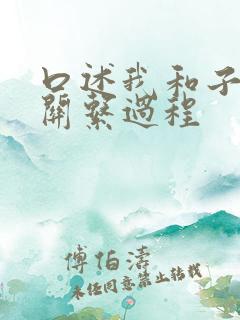 口述我和子
關繫過程
傅伯濤
未经同意禁止转载